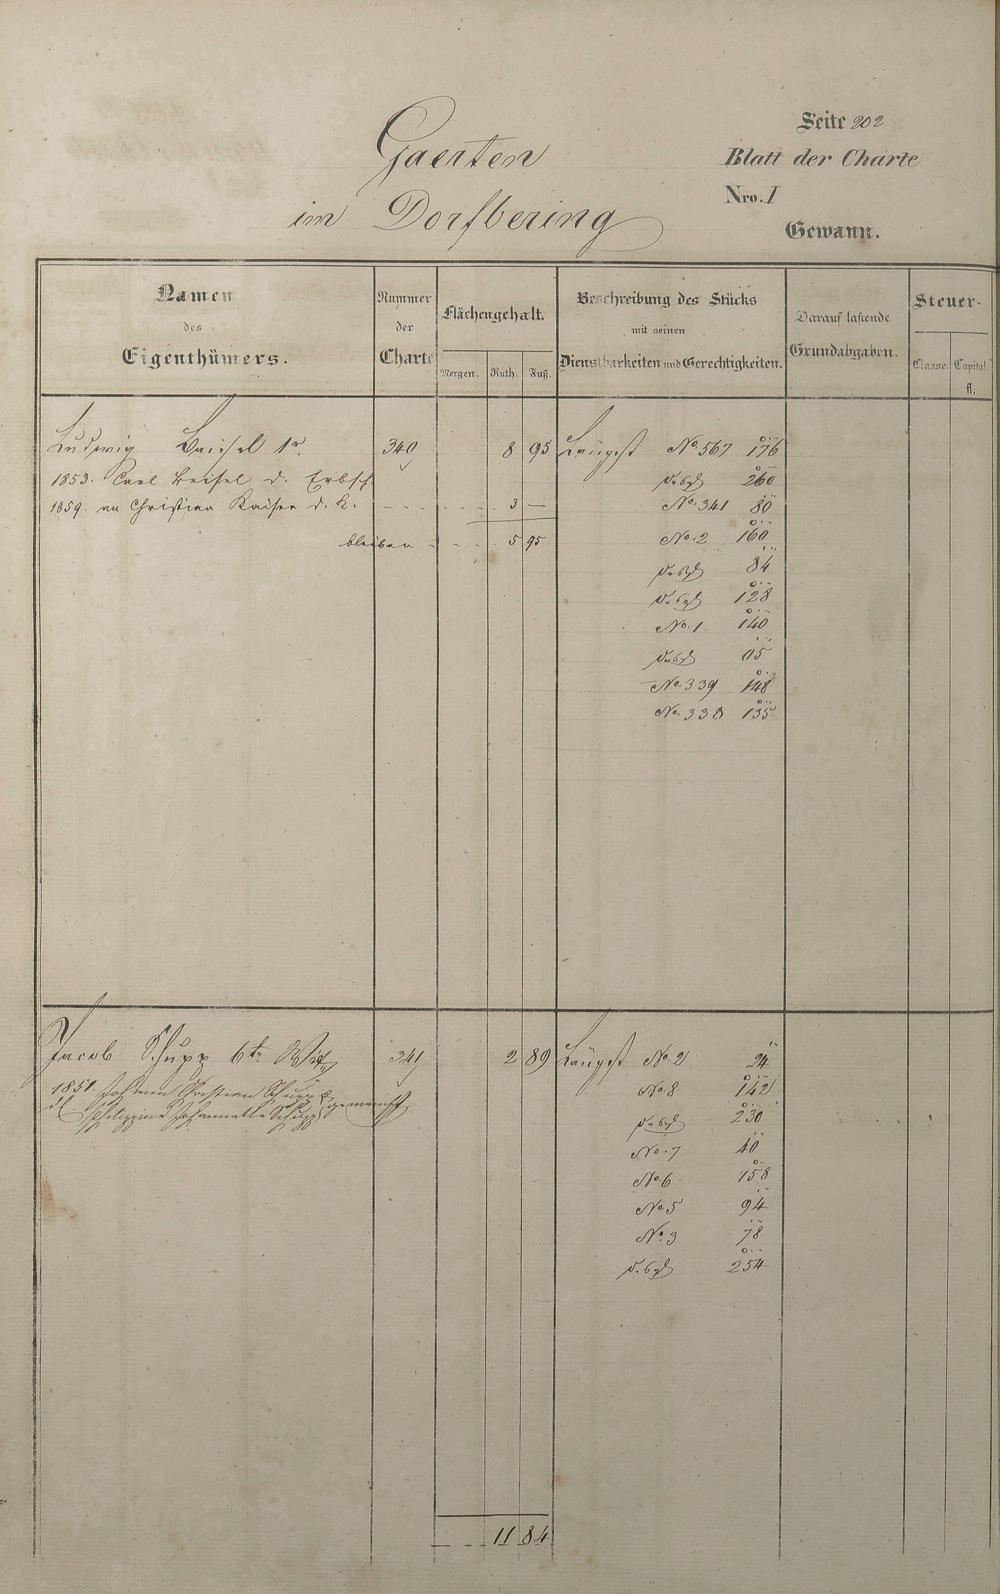 Gaerten
im Dorfbering
Seite 202
Blatt der Charte
Nro. I
Gewann.
Namen
des
Eigenthümers.
Nummer
der
Charte
Flächengehalt.
Morgen. Ruth. Fuß.
Beschreibung des Stücks
mit seinen
Dienstbarkeiten und Gerechtigkeiten.
Darauf lastende
Grundabgaben.
Steuer-
Classe. Capital.
fl.
Ludwig Beisel 1r. 340 8 95 Längst No. 567 176
1853. Carl Beisel d. Erbsch 260
1859. an Christian Kaiser d. K. 3 — No. 341 80
bleiben 5 95 No. 2 160
84
128
No. 1. 140
No. 339 148
No. 338 135
Jacob Schupp 6tr Wtw 341 2 89 Längst No. 2 24
1851. Johann Christian Schupp & No. 8 142
Philippine Johannette Schupp gemeinsch 230
No. 7 40
No. 6 158
No. 5 94
No. 3 78
254
11 84